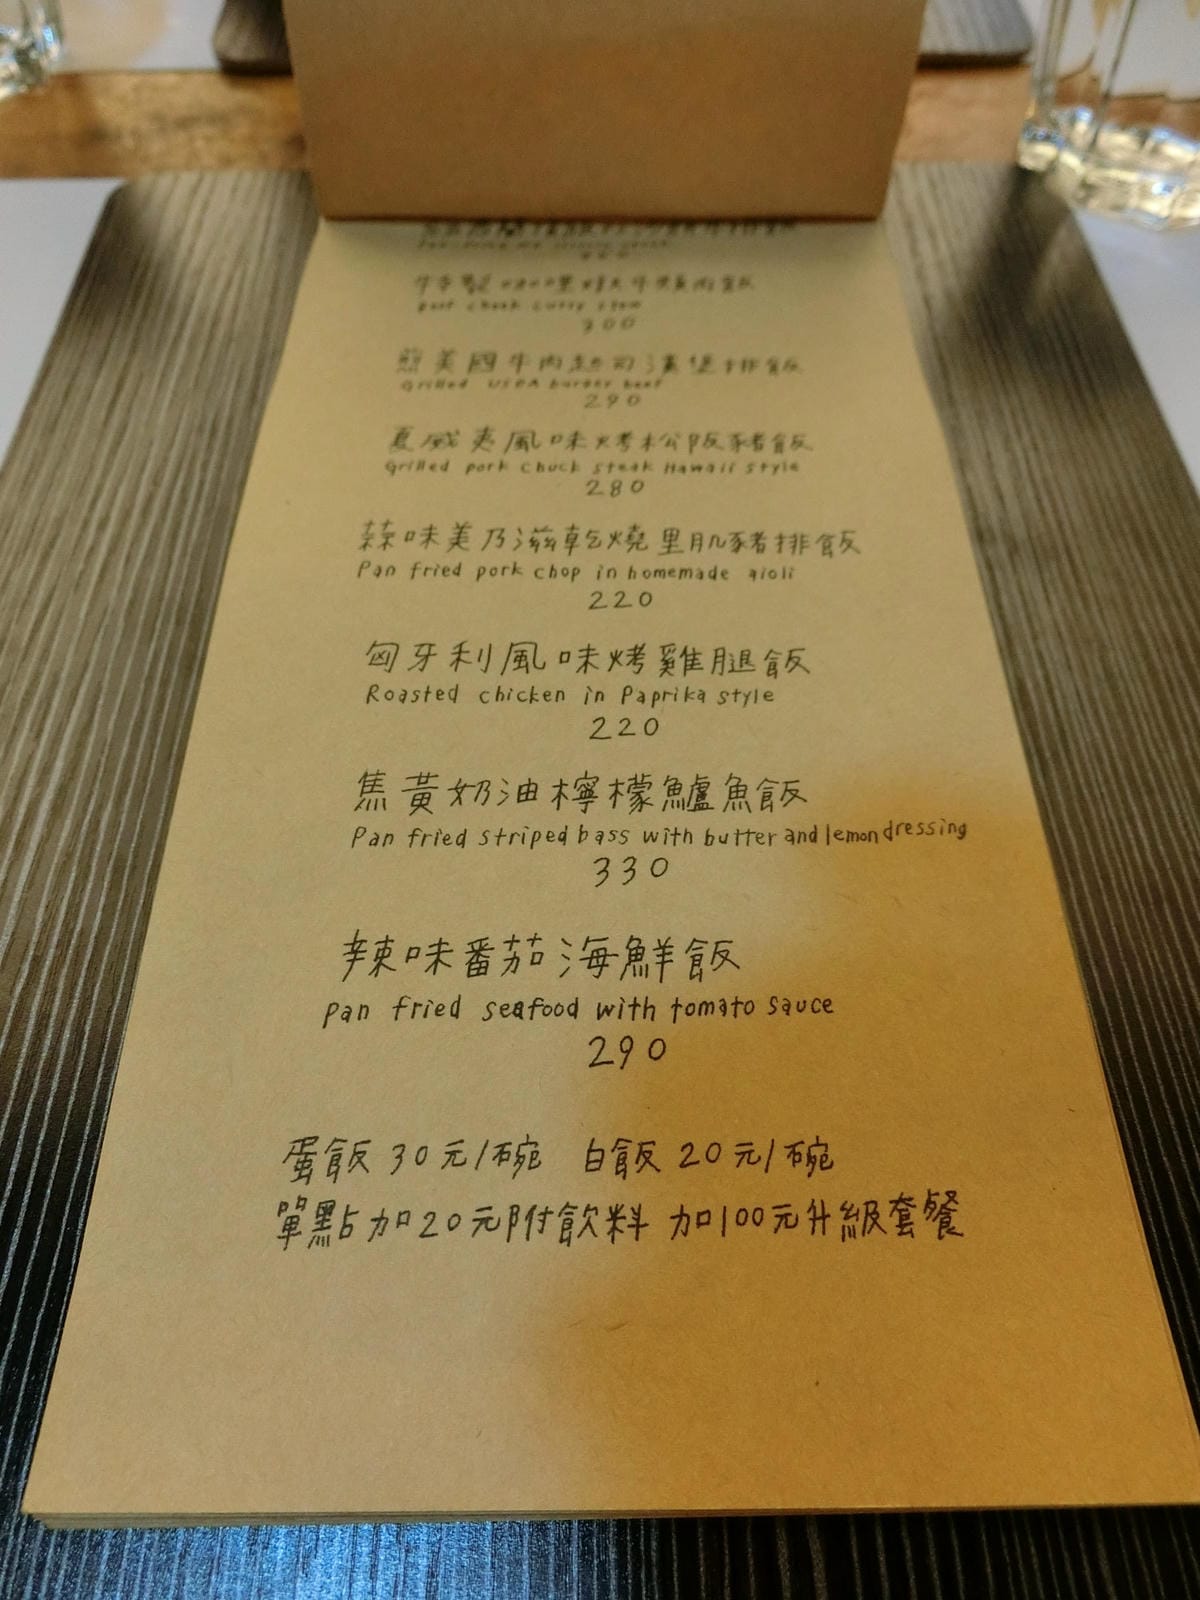 特製咖哩嫩牛頰肉飯
Beef cheek curry stew
300
煎美國牛肉起司漢堡排飯
Grilled USDA burger beef
290
夏威夷風味烤松阪豬飯
Grilled pork chuck steak Hawaii style
280
蒜味美乃滋乾燒里肌豬排飯
Pan fried pork chop in homemade aioli
220
匈牙利風味烤雞腿飯
Roasted chicken in Paprika style
220
焦黃奶油檸檬鱸魚飯
Pan fried striped bass with butter and lemon dressing
330
辣味番茄海鮮飯
pan fried seafood with tomato sauce
290
蛋飯 30元/碗 白飯 20元/碗
單點加20元附飲料 加100元升級套餐